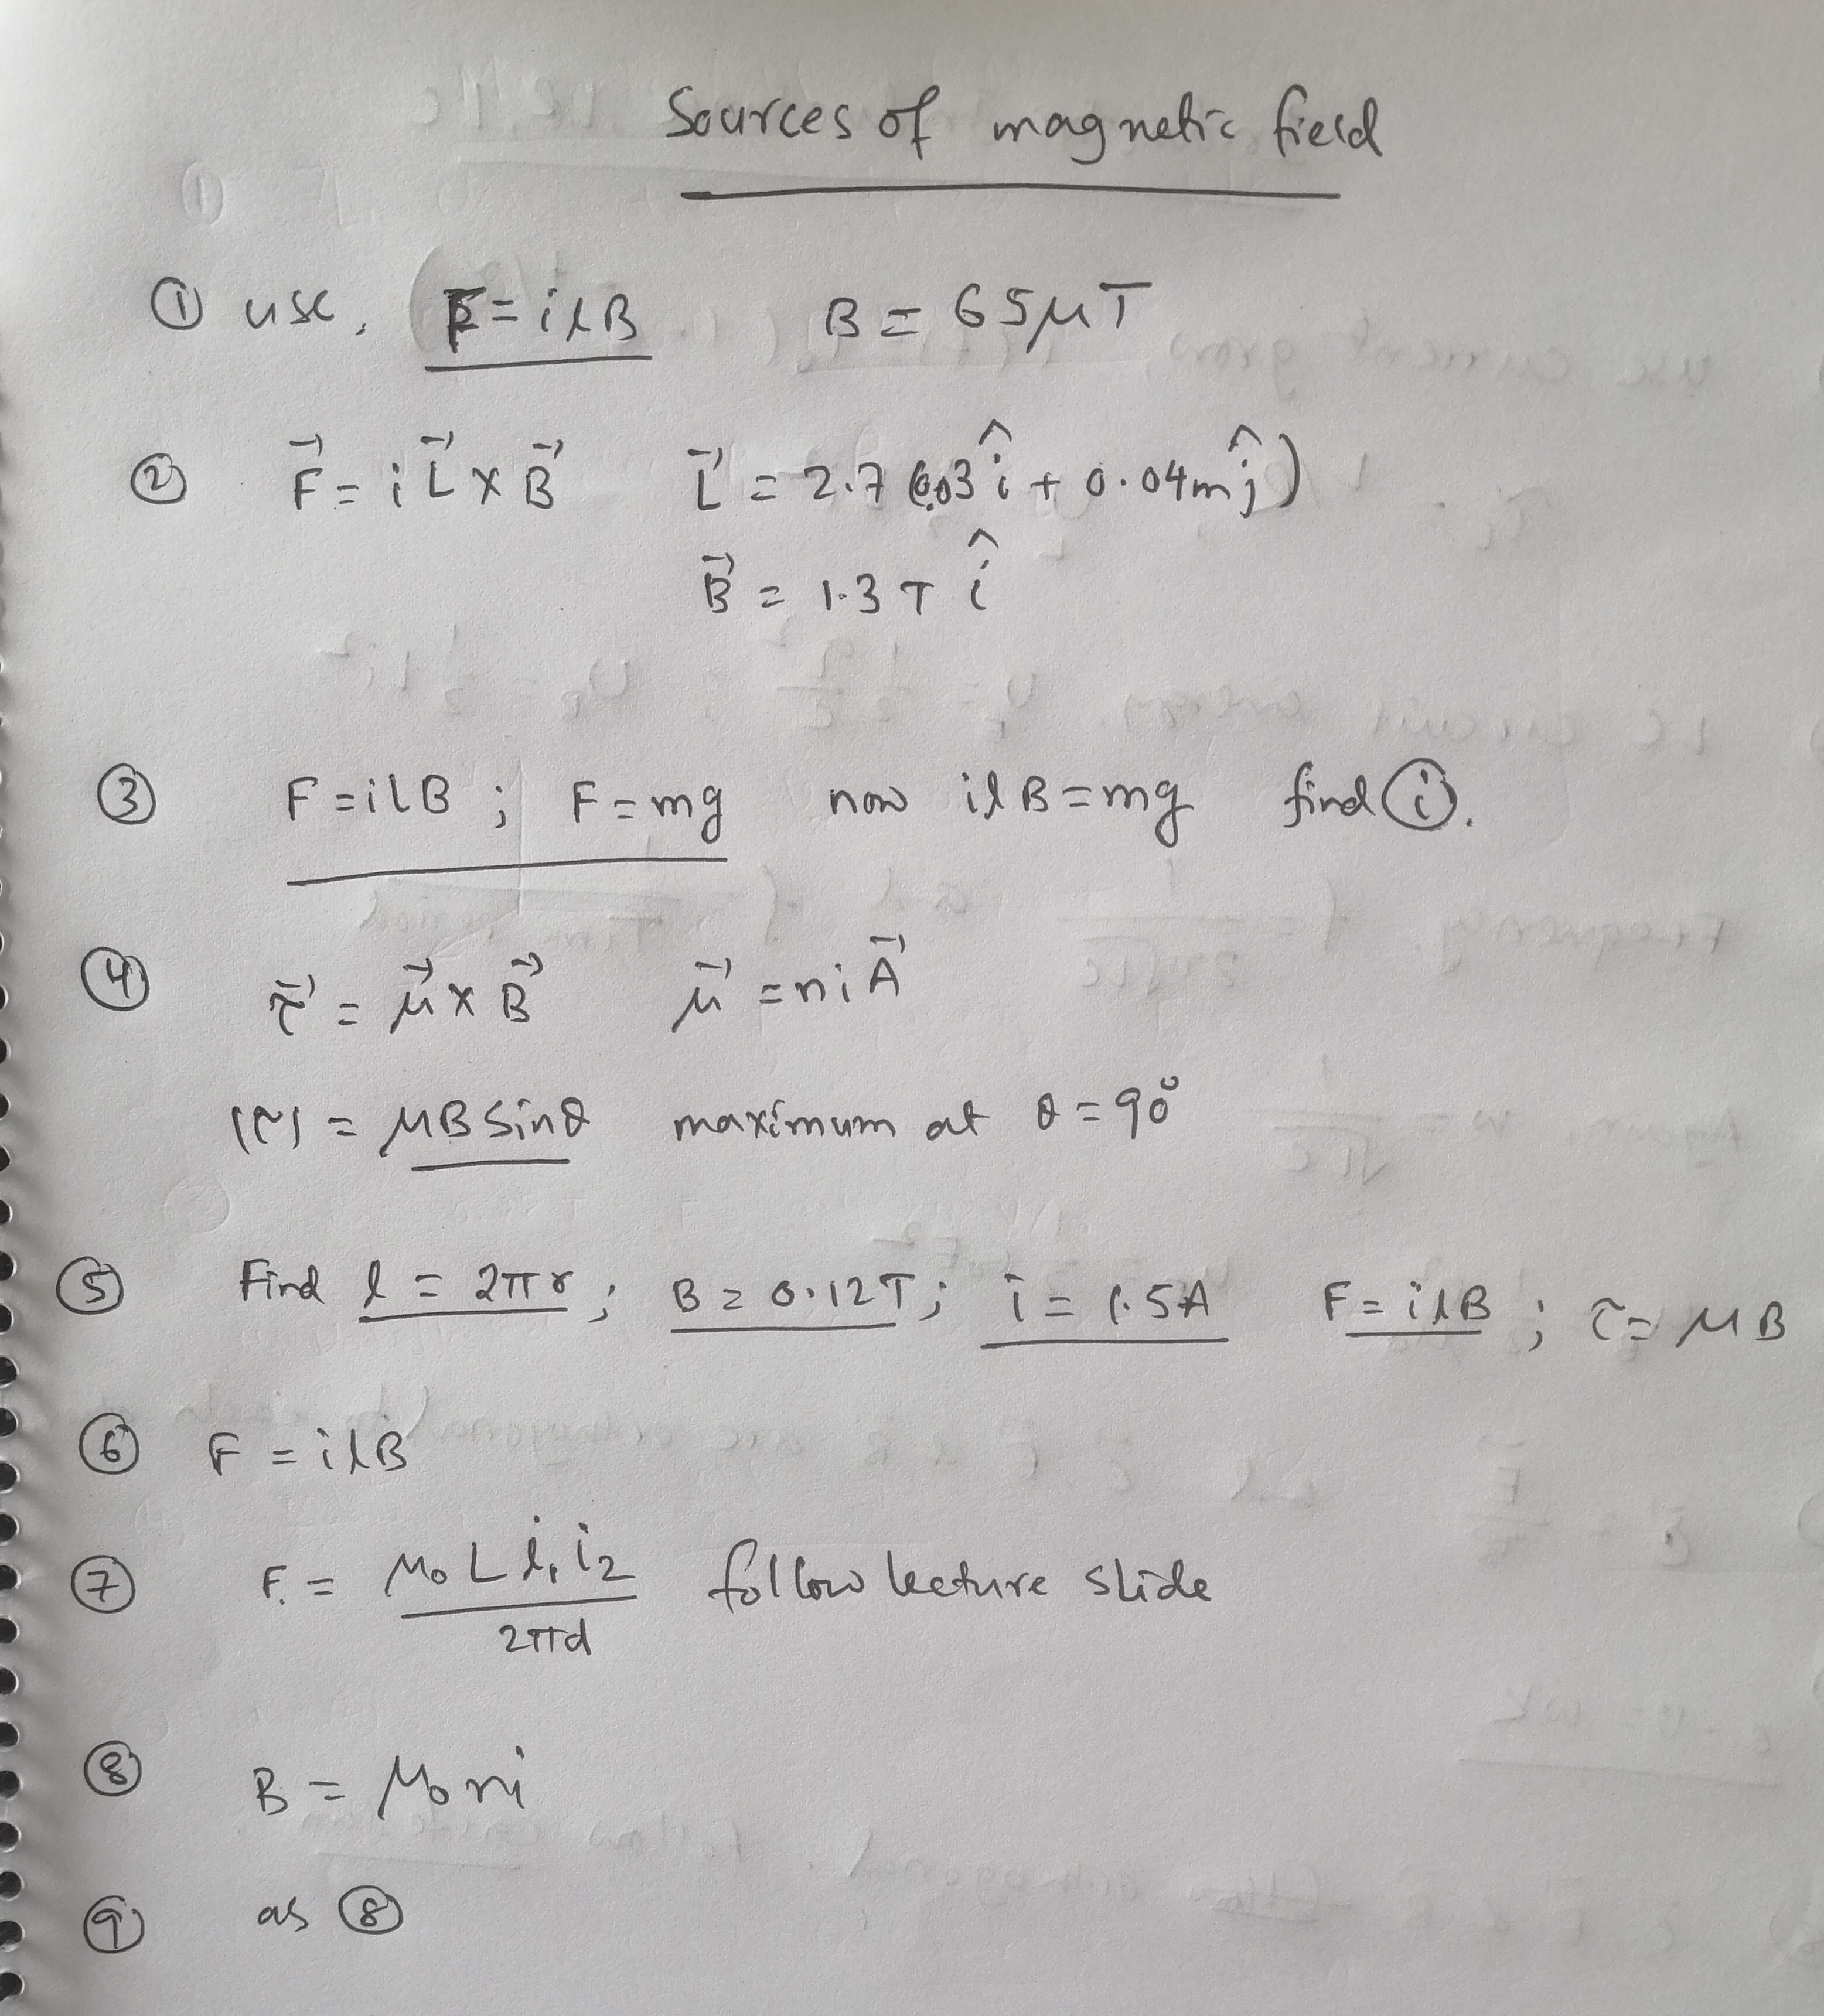 Sources of magnetic field
① use, F = ilB B = 65μT
② F⃗ = i L⃗ × B⃗ L⃗ = 2.7 (0.03 î + 0.04m ĵ)
B⃗ = 1.3 T î
③ F = ilB ; F = mg now ilB = mg find ⓘ.
④ τ⃗ = μ⃗ × B⃗ μ⃗ = niA⃗
|τ| = μB sinθ maximum at θ = 90°
⑤ Find l = 2πr ; B = 0.12T ; i = 1.5A F = ilB ; τ = μB
⑥ F = ilB
⑦ F = μ₀ L i₁ i₂ / 2πd follow lecture slide
⑧ B = μ₀ni
⑨ as ⑧